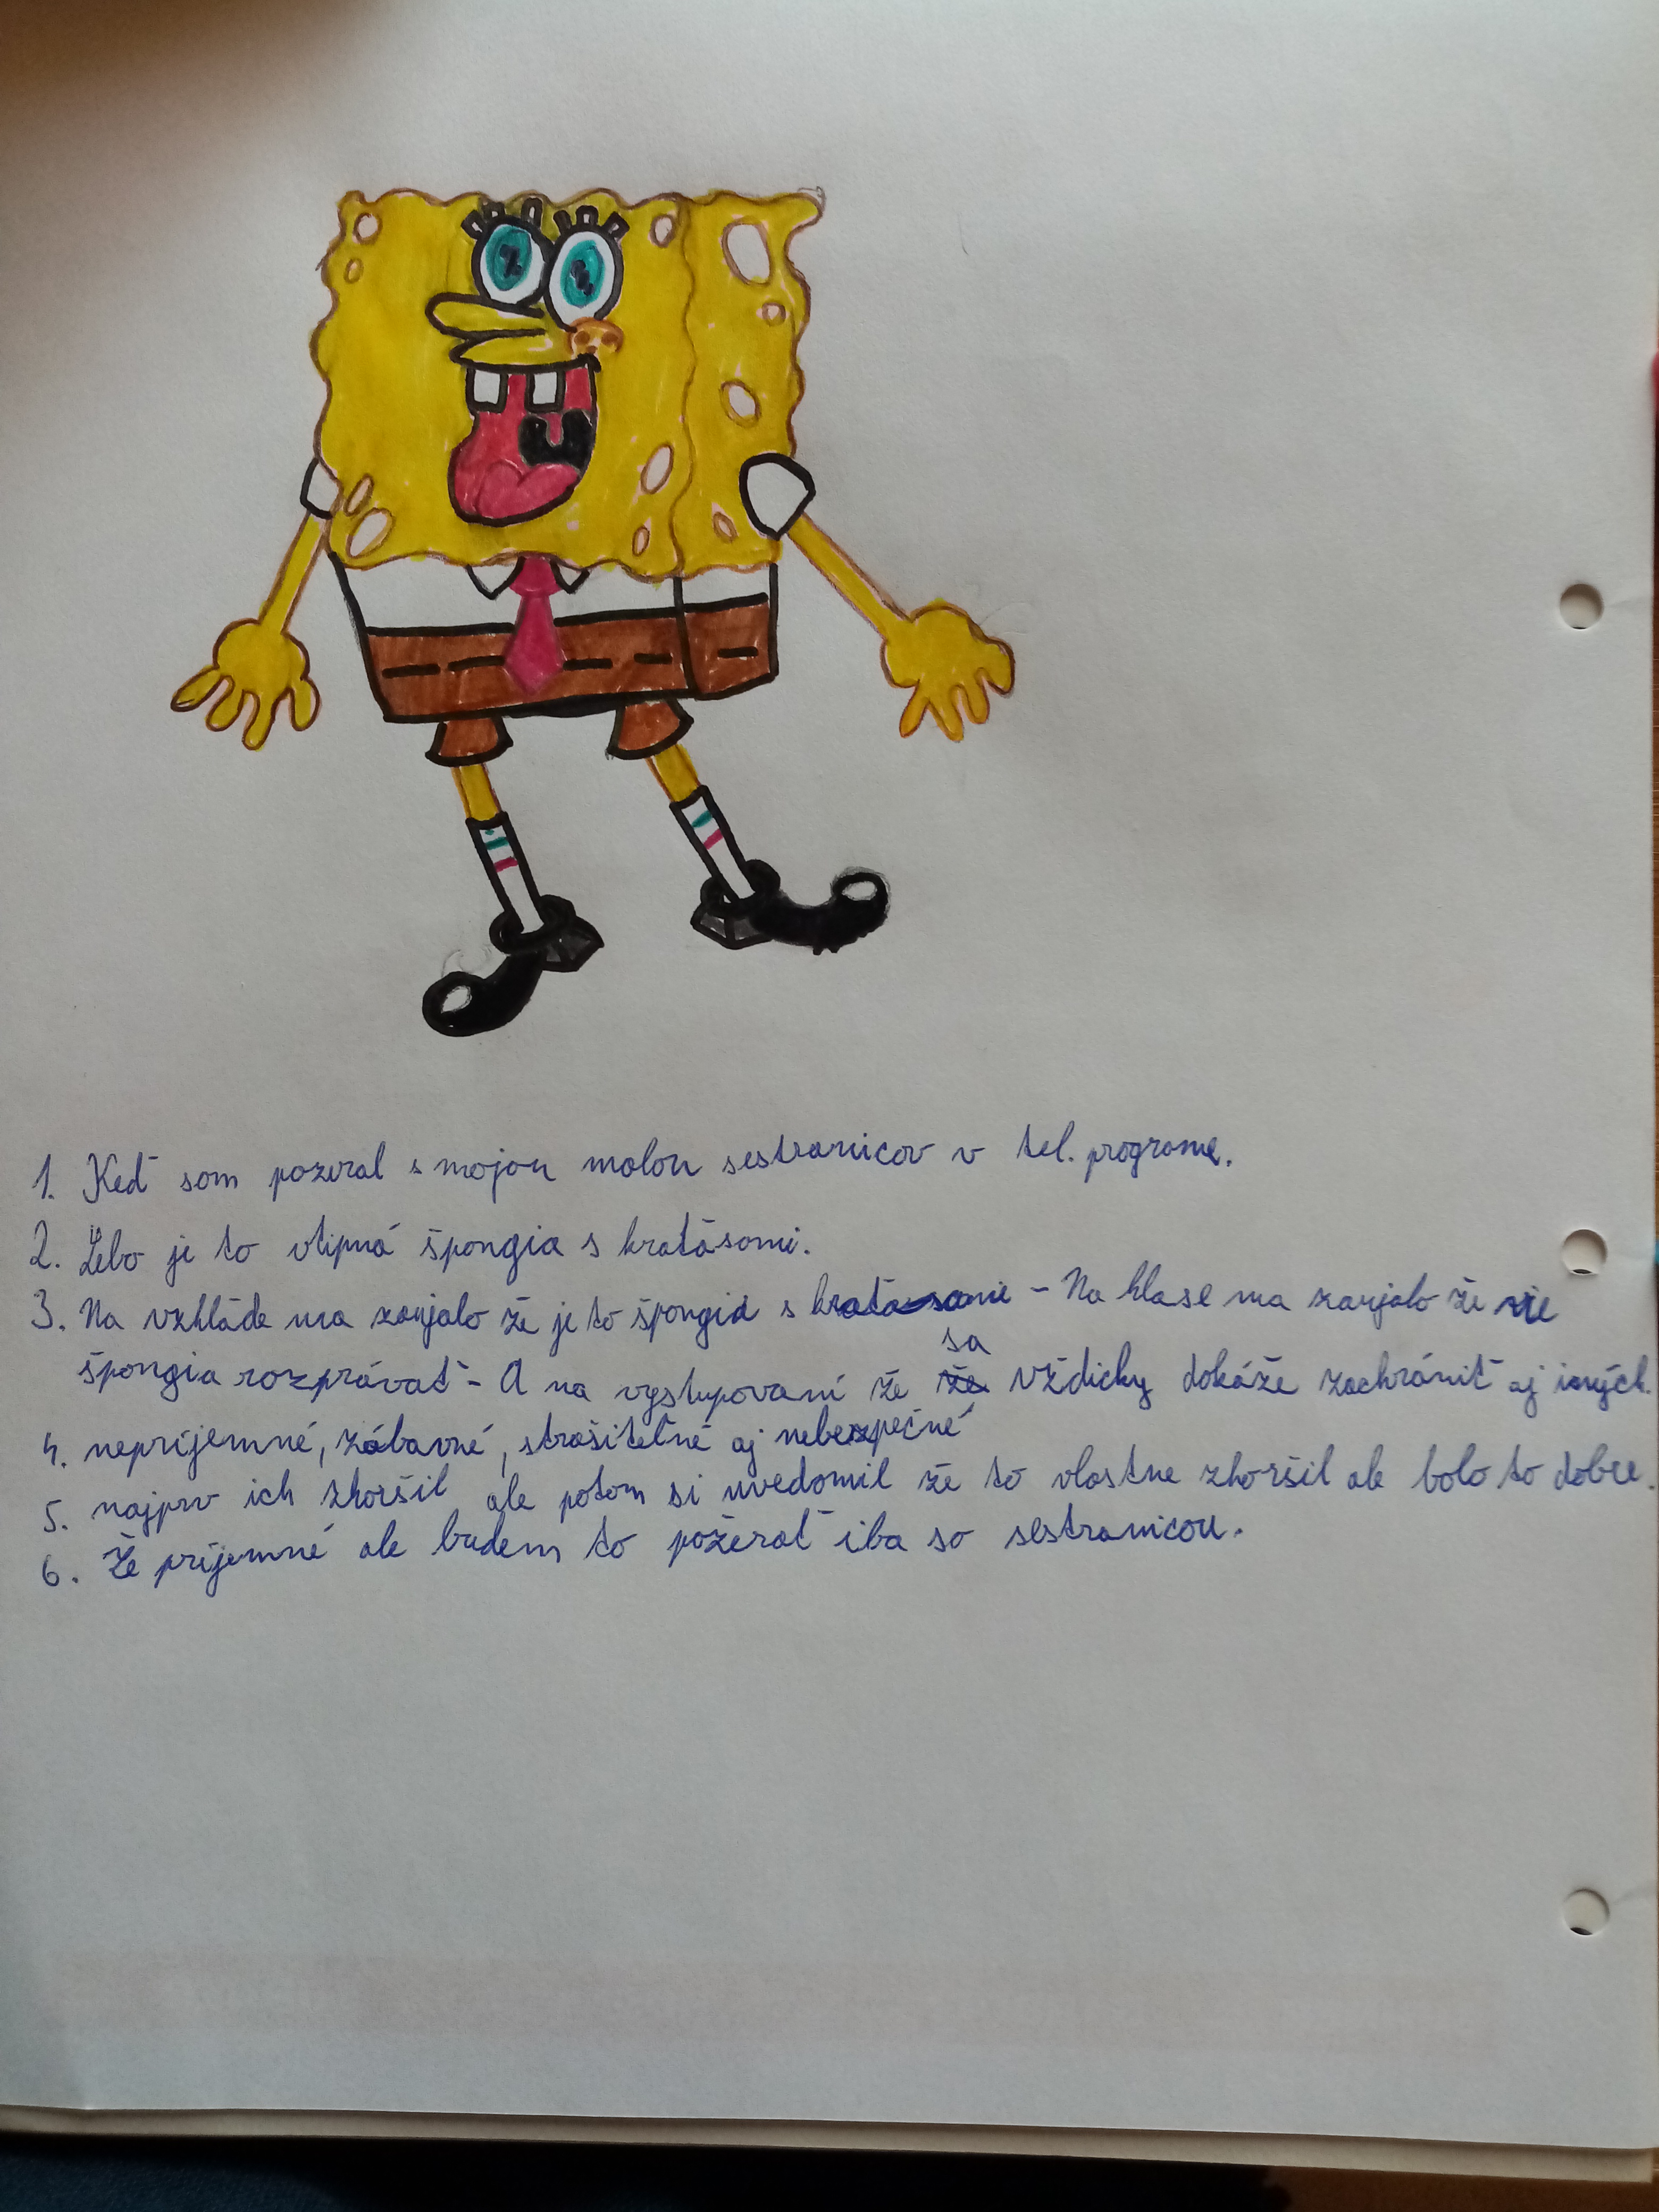 1. Keď som pozeral s mojou malou sestranicov v tel. programe.
2. Lebo je to vtipná špongia s kraťasami.
3. Na vzhľade ma zaujalo že je to špongia s kraťasami - Na hlase ma zaujalo že vie
sa
špongia rozprávať - A na vystupovaní že že vždicky dokáže zachrániť aj iných.
4. neprijemné, zábavné, strašiteľné aj nebezpečné
5. najprv ich zhoršil ale potom si uvedomil že to vlastne zhoršil ale bolo to dobre.
6. Že príjemné ale budem to požerať iba so sestranicou.